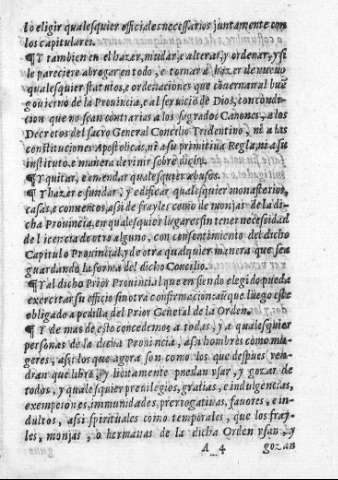 lo eligir qualesquier officiales necessarios juntamente con
los capitulares.
¶ Y tambien en el hazer, mudar, e alterar, y ordenar, y si
le pareciere abrogar en todo, e tornar a hazer de nueuo
qualesquier statutos, e ordenaciones que conuernan al buē
gouierno de la Prouincia, e al seruicio de Dios, con condi-
cion que no sean contrarias a los sagrados Canones, a los
Decretos del sacro General Concilio Tridentino, ni a las
constituciones Apostolicas, ni a su primitiua Regla, ni a su
instituto, e manera de viuir sobre dicha.
¶ Y quitar, e emendar qualesquier abusos.
¶ Y hazer e fundar, y edificar qualesquier monasterios,
casas, e conuentos, assi de frayles como de monjas de la di-
cha Prouincia, en qualesquier lugares sin tener necessidad
de licencia de otro alguno, con consentimiento del dicho
Capitulo Prouincial, y de otra qualquier manera que sea
guardando la forma del dicho Concilio.
¶ Y al dicho Prior Prouincial que en siendo elegido pueda
exercitar su officio sin otra confirmacion aūque luego este
obligado a pedilla del Prior General de la Orden.
¶ Y de mas de esto concedemos a todas, y a qualesquier
personas de la dicha Prouincia, assi hombres como mu-
geres, assi los que agora son como los que despues ven-
dran que libre, y licitamente puedan vsar, y gozar de
todos, y qualesquier preuilegios, gratias, e indulgentias,
exempciones, immunidades, prerrogatiuas, fauores, e in-
dultos, assi spirituales como temporales, que los fray-
les, monjas, o hermanas de la dicha Orden vsan, y
A 4 gozan